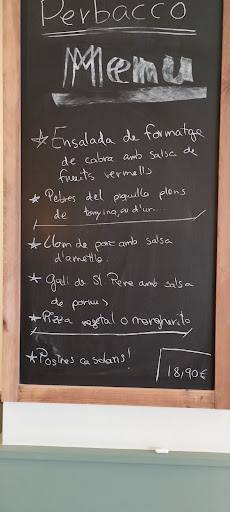 Perbacco
Menu
Ensalada de formatge
de cabra amb salsa de
fruits vermells
Pebres del piquillo plens
de tonyina, ou d'ur...
Llom de porc amb salsa
d'ametlla.
Gall de St Pere amb salsa
de porros
Pizza vegetal o margarita
Postres casolans!
18,90€